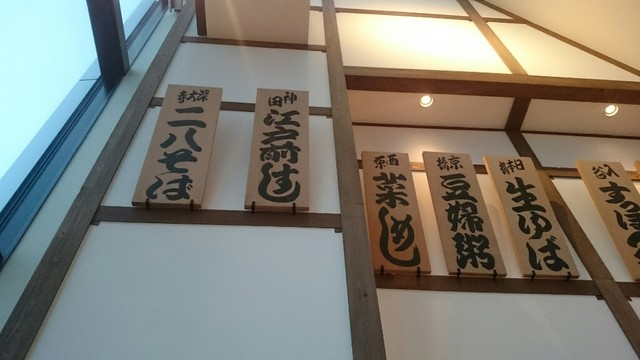 深大寺
二八そば
神田
江戸前すし
菜めし
京橋
豆婦粥
日本橋
生ゆば
入谷
すっぽん